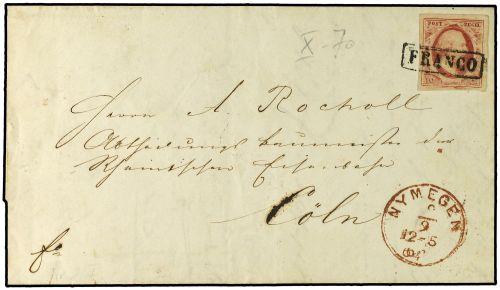 X-70
POST ZEGEL
FRANCO
Herrn A. Rocholl
Abtheilungs baumeister der
Rheinischen Eisenbahn
Cöln
NYMEGEN
9
12-5
fo